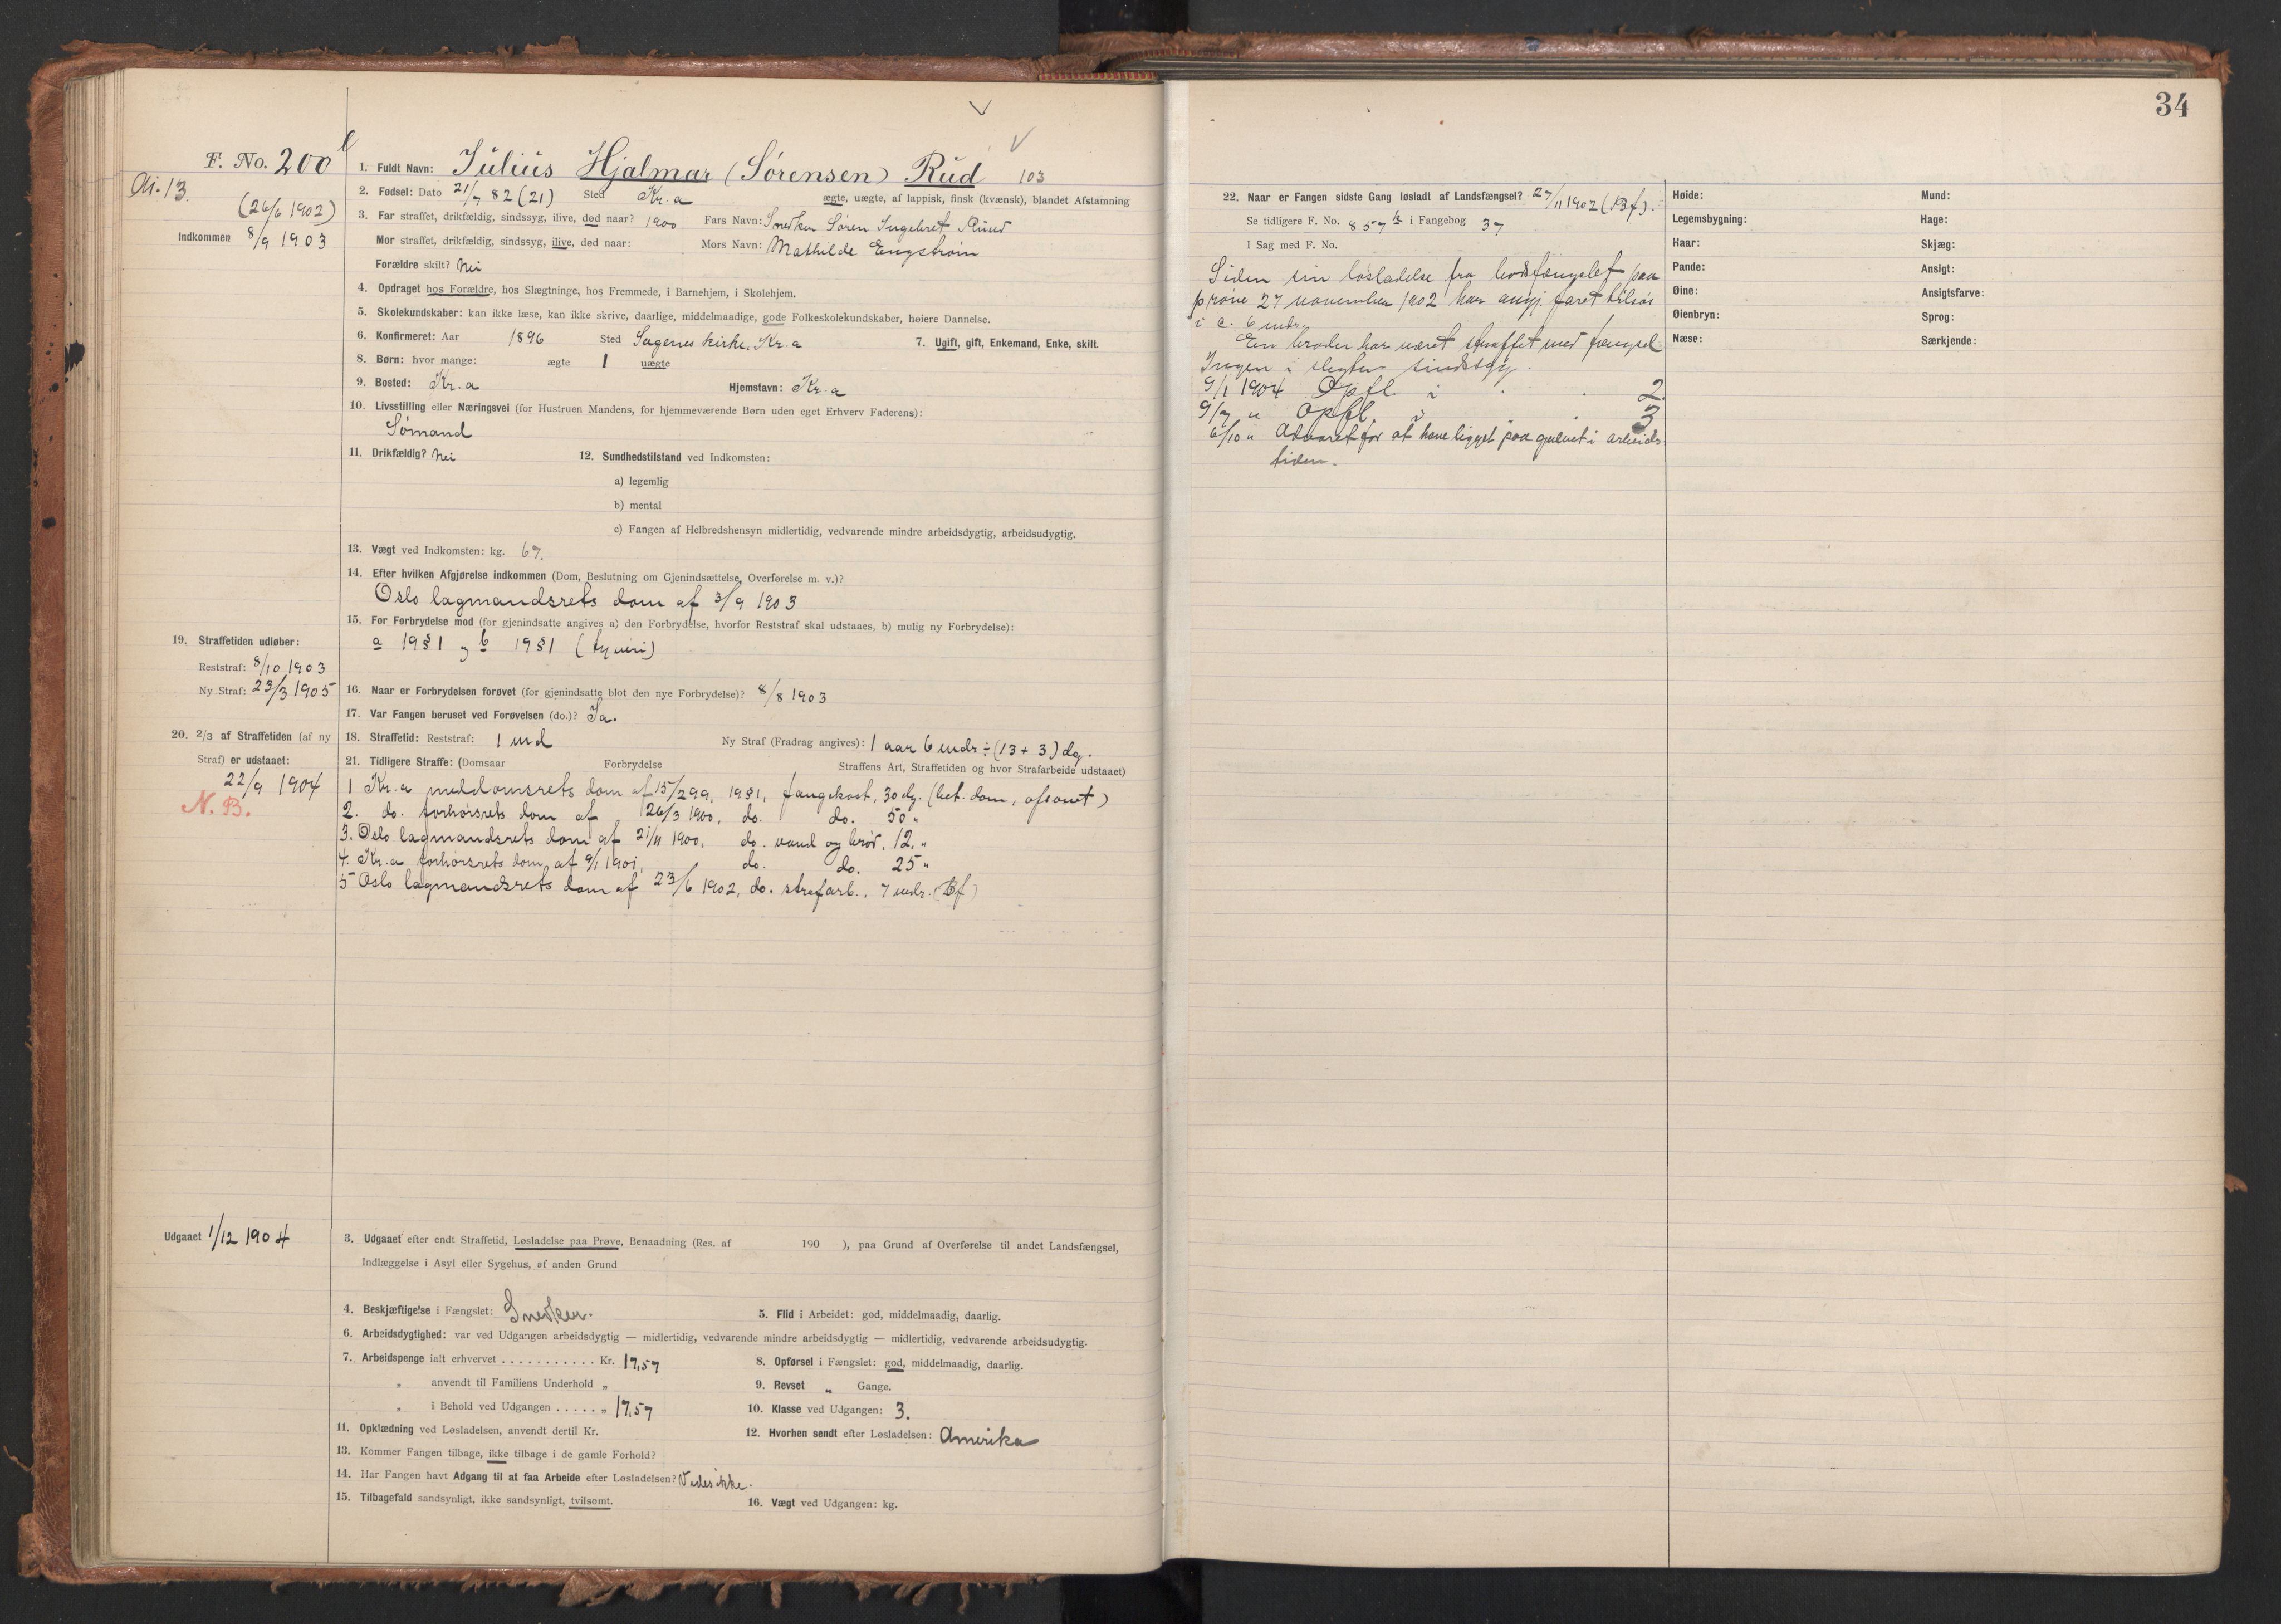 F. No. 200
Ai. 13.
(26/6 1902)
Indkommen 8/9 1903
1. Fuldt Navn: Julius Hjalmar (Sørensen) Rud 103
2. Fødsel: Dato 21/7 82 (21) Sted Kr.a ægte, uægte, af lappisk, finsk (kvænsk), blandet Afstamning
3. Far straffet, drikfældig, sindssyg, ilive, død naar? 1900 Fars Navn: Snedker Søren Ingebret Ruud
Mor straffet, drikfældig, sindssyg, ilive, død naar: Mors Navn: Mathilde Engstrøm
Forældre skilt? Nei
4. Opdraget hos Forældre, hos Slægtninge, hos Fremmede, i Barnehjem, i Skolehjem.
5. Skolekundskaber: kan ikke læse, kan ikke skrive, daarlige, middelmaadige, gode Folkeskolekundskaber, høiere Dannelse.
6. Konfirmeret: Aar 1896 Sted Sagenes kirke, Kr.a 7. Ugift, gift, Enkemand, Enke, skilt.
8. Børn: hvor mange: ægte 1 uægte
9. Bosted: Kr.a Hjemstavn: Kr.a
10. Livsstilling eller Næringsvei (for Hustruen Mandens, for hjemmeværende Børn uden eget Erhverv Faderens):
Sømand
11. Drikfældig? Nei 12. Sundhedstilstand ved Indkomsten:
a) legemlig
b) mental
c) Fangen af Helbredshensyn midlertidig, vedvarende mindre arbeidsdygtig, arbeidsudygtig.
13. Vægt ved Indkomsten: kg. 67.
14. Efter hvilken Afgjørelse indkommen (Dom, Beslutning om Gjenindsættelse, Overførelse m. v.)?
Oslo lagmandsrets dom af 3/9 1903
15. For Forbrydelse mod (for gjenindsatte angives a) den Forbrydelse, hvorfor Reststraf skal udstaaes, b) mulig ny Forbrydelse):
a 19 § 1 og b 19 § 1 (tyveri)
19. Straffetiden udløber:
Reststraf: 8/10 1903
Ny Straf: 23/3 1905
16. Naar er Forbrydelsen forøvet (for gjenindsatte blot den nye Forbrydelse)? 8/8 1903
17. Var Fangen beruset ved Forøvelsen (do.)? Ja.
20. 2/3 af Straffetiden (af ny Straf) er udstaaet:
22/9 1904
N. B.
18. Straffetid: Reststraf: 1 md Ny Straf (Fradrag angives): 1 aar 6 mdr ÷ (13 + 3) dg.
21. Tidligere Straffe: (Domsaar Forbrydelse Straffens Art, Straffetiden og hvor Strafarbeide udstaaet)
1 Kr.a meddomsrets dom af 15/2 99, 19 § 1, fangekost, 30 dg. (bet. dom, afsonet)
2. do. forhørsrets dom af 26/3 1900, do. do. 50 "
3. Oslo lagmandsrets dom af 21/11 1900, do. vand og brød, 12 "
4. Kr.a forhørsrets dom af 9/1 1901, do. do. 25 "
5 Oslo lagmandsrets dom af 23/6 1902, do. strafarb., 7 mdr. (Bf)
Udgaaet 1/12 1904
3. Udgaaet efter endt Straffetid, Løsladelse paa Prøve, Benaadning (Res. af 190 ), paa Grund af Overførelse til andet Landsfængsel,
Indlæggelse i Asyl eller Sygehus, af anden Grund
4. Beskjæftigelse i Fængslet: Snedker. 5. Flid i Arbeidet: god, middelmaadig, daarlig.
6. Arbeidsdygtighed: var ved Udgangen arbeidsdygtig — midlertidig, vedvarende mindre arbeidsdygtig — midlertidig, vedvarende arbeidsudygtig.
7. Arbeidspenge ialt erhvervet . . . . . . . . . . . Kr. 17,57 8. Opførsel i Fængslet: god, middelmaadig, daarlig.
" anvendt til Familiens Underhold " 9. Revset " Gange.
" i Behold ved Udgangen . . . . . " 17,57 10. Klasse ved Udgangen: 3.
11. Opklædning ved Løsladelsen, anvendt dertil Kr. 12. Hvorhen sendt efter Løsladelsen: Amerika
13. Kommer Fangen tilbage, ikke tilbage i de gamle Forhold?
14. Har Fangen havt Adgang til at faa Arbeide efter Løsladelsen? Vides ikke.
15. Tilbagefald sandsynligt, ikke sandsynligt, tvilsomt. 16. Vægt ved Udgangen: kg.
34
22. Naar er Fangen sidste Gang løsladt af Landsfængsel? 27/11 1902 (Bf).
Se tidligere F. No. 857 b i Fangebog 37
I Sag med F. No.
Siden sin løsladelse fra bodsfængslet paa
prøve 27 november 1902 har angj. faret tilsøs
i c. 6 mdr.
En broder har været straffet med fængsel
Ingen i slegten sindssyg.
9/1 1904 Opfl. i 2
9/7 " Opfl. " 3
6/10 " Advaret for at have ligget paa gulvet i arbeids-
tiden.
Høide: Mund:
Legemsbygning: Hage:
Haar: Skjæg:
Pande: Ansigt:
Øine: Ansigtsfarve:
Øienbryn: Sprog:
Næse: Særkjende: